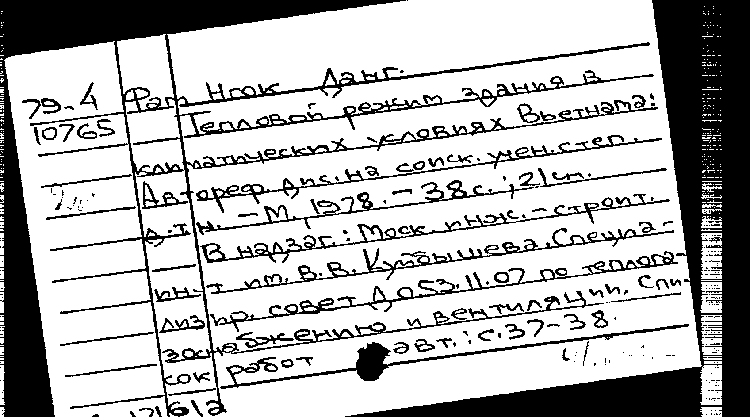 79-4 Фам Нгок Данг.
10765 Тепловой режим здания в
климатических условиях Вьетнама:
Автореф. дис. на соиск. учен. степ.
д.т.н. - М., 1978. - 38 с.; 21 см.
В надзаг.: Моск. инж.-строит.
ин-т им. В. В. Куйбышева. Специа-
лизир. совет Д.053.11.07 по теплога-
зоснабжению и вентиляции. Спи-
сок работ авт.: с. 37-38.